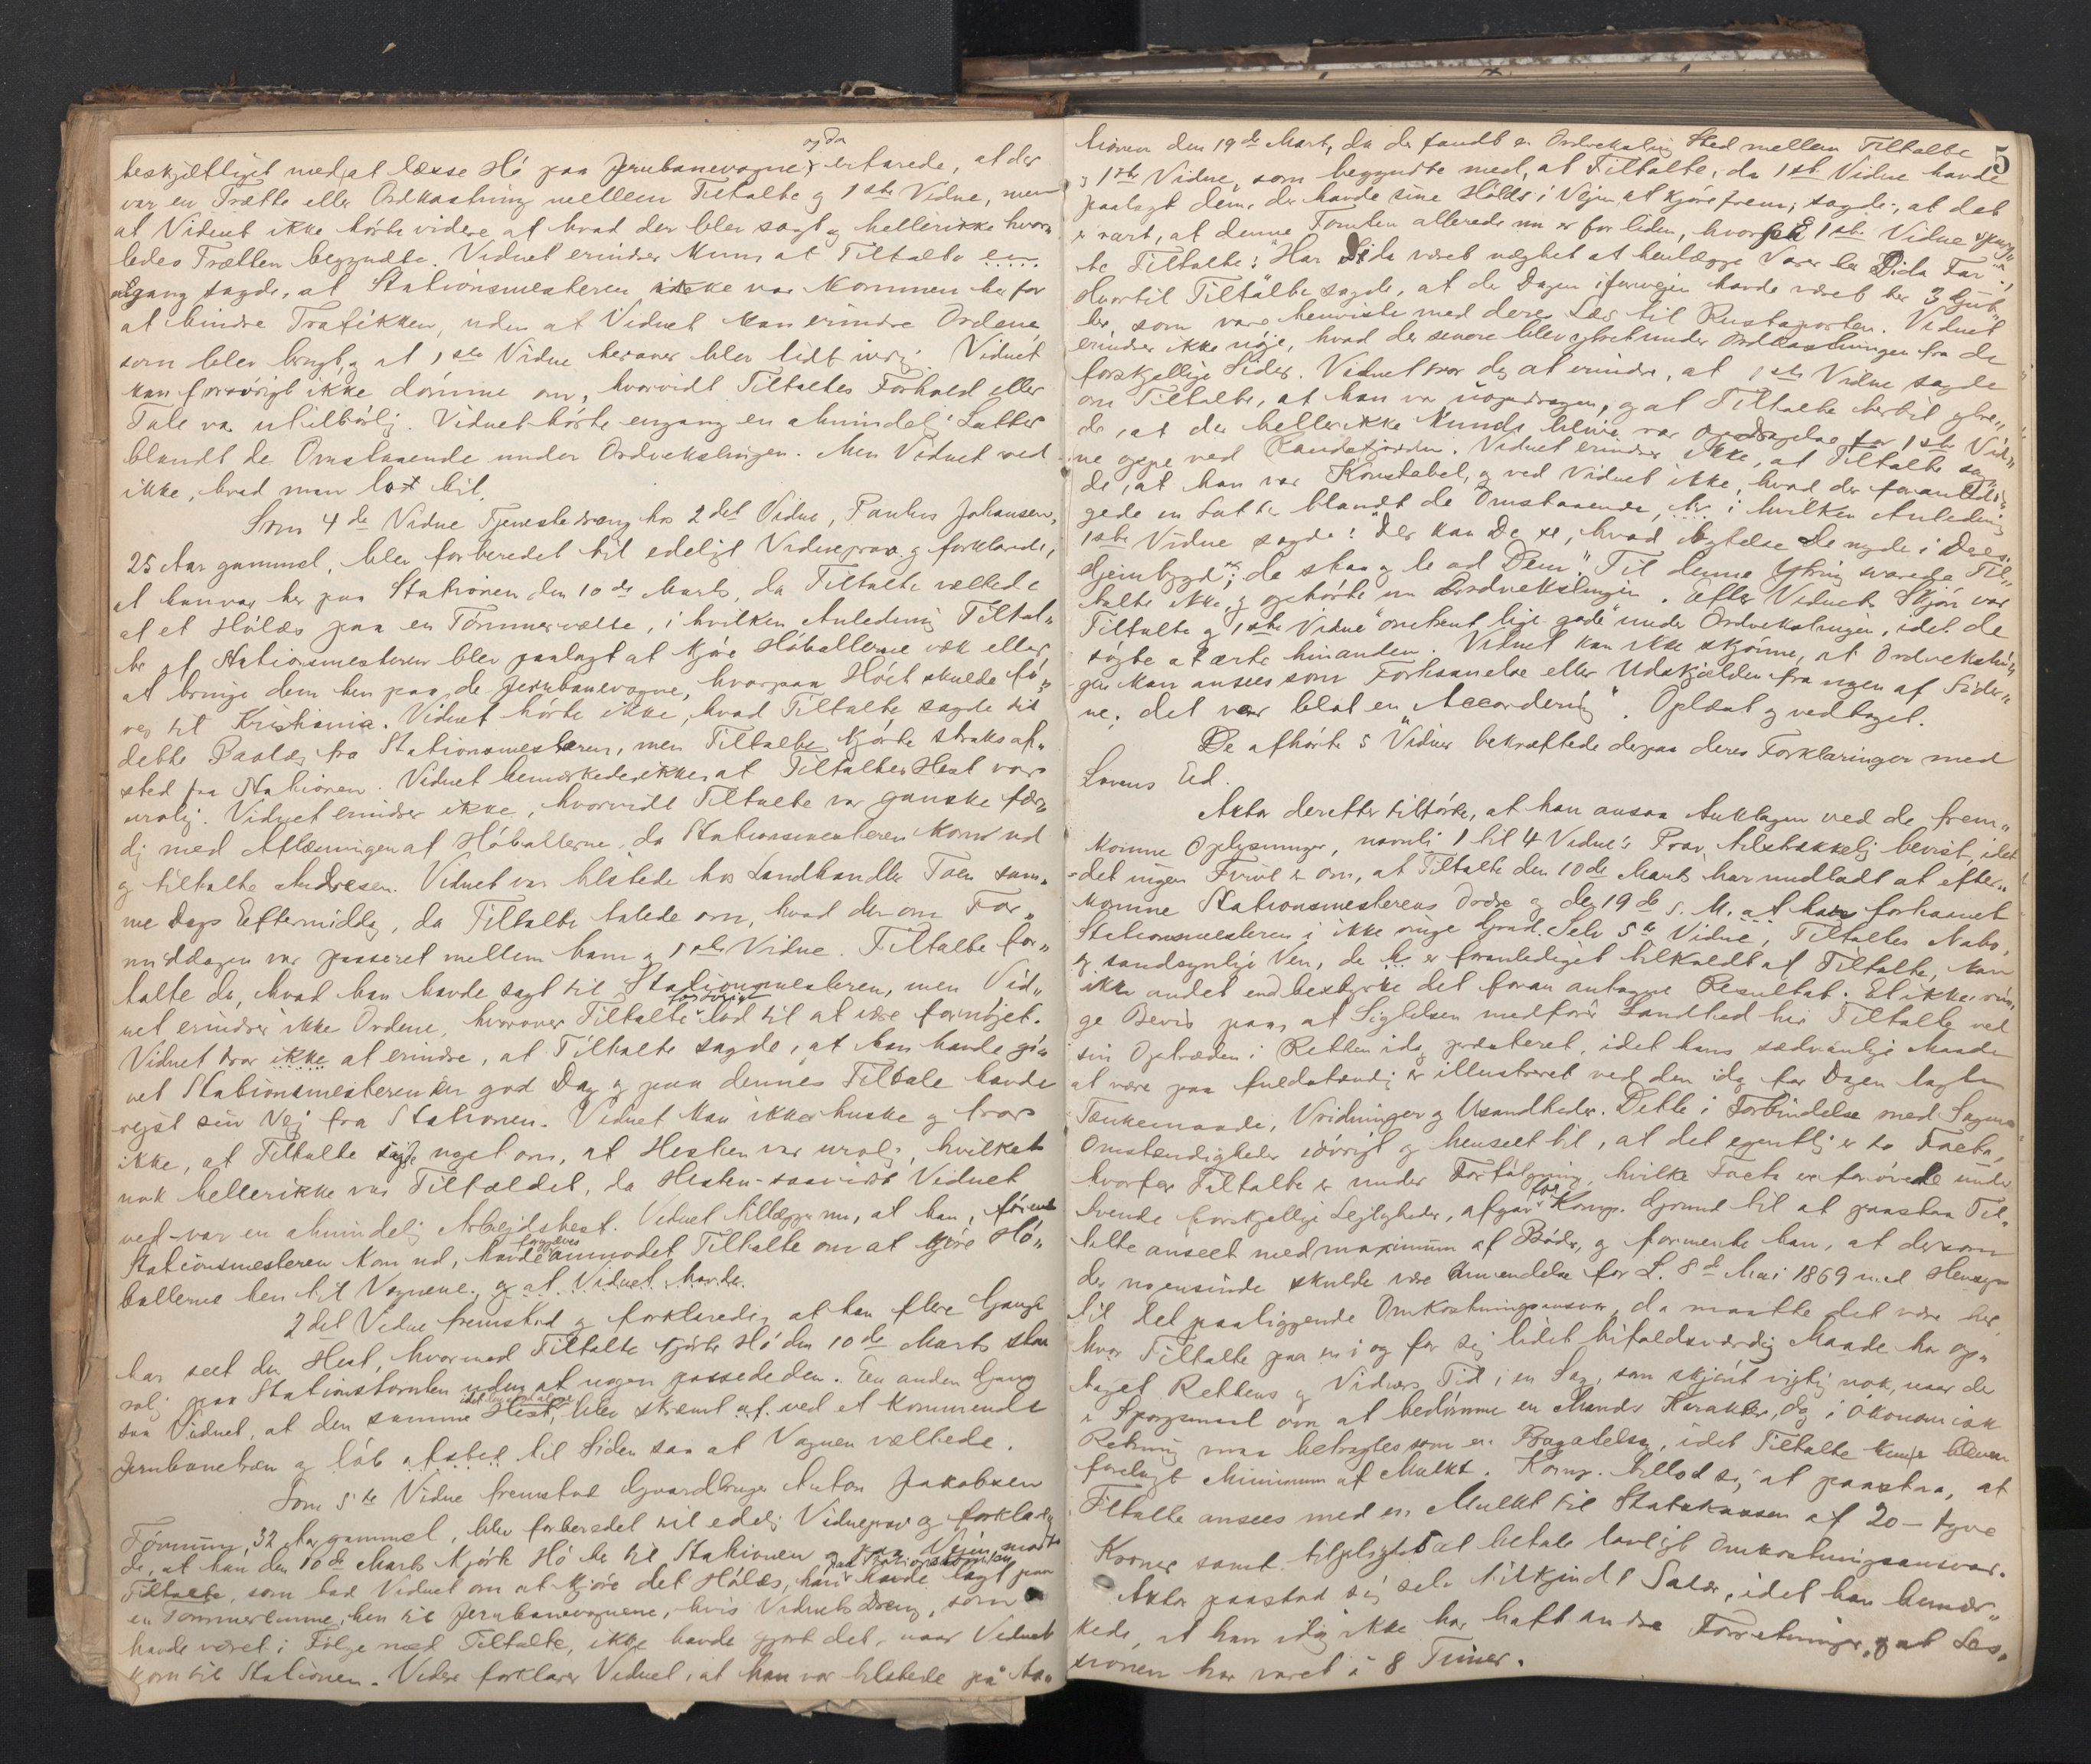 og da
beskjæftiget med at læsse Hö paa Jernbanevogne, erfarede, at der
var en Trætte eller Ordkastning mellem Tiltalte og 1ste Vidne, men
at Vidnet ikke hörte videre af hvad der blev sagt og hellerikke hvor„
ledes Trætten begyndte. Vidnet erindrer kun at Tiltalte en
gang sagde, at Stationsmesteren ikke var kommen her for
at hindre Trafikken, uden at Vidnet kan erindre Ordene,
som blev brugt, og at 1ste Vidne herover blev lidt ivrig. Vidnet
kan forövrigt ikke dömme om, hvorvidt Tiltaltes Forhold eller
Tale var utilbörlig. Vidnet hörte engang en almindelig Latter
blandt de Omstaaende under Ordvekslingen. Men Vidnet ved
ikke, hvad man lo ad.
Som 4de Vidne Tjenestedreng hos 2det Vidne, Paulus Johansen,
25 Aar gammel, blev forberedet til edeligt Vidneprov og forklarede,
at han var her paa Stationen den 10de Marts, da Tiltalte væltede
af et Hölæs paa en Tömmervælte, i hvilken Anledning Tiltal„
te af Stationsmesteren blev paalagt at kjöre Höballerne væk eller
at bringe dem hen paa de Jernbanevogne, hvorpaa Höet skulde fö„
res til Kristiania. Vidnet hörte ikke, hvad Tiltalte sagde til
dette Paalæg fra Stationsmesteren, men Tiltalte kjörte straks af„
sted fra Stationen. Vidnet bemærkede ikke, at Tiltaltes Hest var
urolig. Vidnet erindrer ikke, hvorvidt Tiltalte var ganske fær„
dig med Aflæsningen af Höballerne, da Stationsmesteren kom ud
og tiltalte Andresen. Vidnet var tilstede hos Landhandler Toen sam„
me Dags Eftermiddag, da Tiltalte talede om, hvad der om For„
middagen var passeret mellem ham og 1ste Vidne. Tiltalte for„
talte da, hvad han havde sagt til Stationsmesteren, men Vid„
net erindrer ikke Ordene, hvorover Tiltalte forövrigt lod til at være fornöjet.
Vidnet tror ikke at erindre, at Tiltalte sagde, at han havde gi„
vet Stationsmesteren en god Dag og paa dennes Tiltale havde
rejst sin Vej fra Stationen. Vidnet kan ikke huske og tror
ikke, at Tiltalte sagde noget om, at Hesten var urolig, hvilket
nok hellerikke var Tilfældet, da Hesten - saavidt Vidnet
ved - var en almindelig Arbejdshest. Vidnet tillægger nu, at han, förend
Stationsmesteren kom ud, havde forgjæves anmodet Tiltalte om at kjöre Hö„
ballerne hen til Vognene. og at Vidnet havde.
2det Vidne fremstod og forklarede, at han flere Gange
har seet den Hest, hvormed Tiltalte kjörte Hö den 10de Marts staa
rolig paa Stationstomten uden at nogen passede den. En anden Gang
saa Vidnet, at den samme Hest, blev skræmt af ved et kommende
Jernbanetræn og löb afsted til Siden saa at Vognen væltede.
Som 5te Vidne fremstod Gaardbruger Anton Jakobsen
Tömmen, 32 Aar gammel, blev forberedet til edelig Vidneprov og forklare„
de, at han den 10de Marts kjörte Hö her til Stationen og paa Vejen mödte
paa Stationstomten
Tiltalte, som bad Vidnet om at kjöre det Hölæs, han havde lagt paa
en Tömmertomme, hen til Jernbanevognene, hvis Vidnets Dreng, som
havde været i Fölge med Tiltalte, ikke havde gjort det, naar Vidnet
kom til Stationen. Videre forklarer Vidnet, at han var tilstede paa Sta„
5
tionen den 19de Mart, da der fandt en Ordveksling Sted mellem Tiltalte
og 1ste Vidne, som begyndte med, at Tiltalte, da 1ste Vidne havde
paalagt dem, der havde sine Hölæs i Vejen at kjöre frem, sagde, at det
er rart, at denne Tomten allerede nu er for liden, hvorpaa 1ste Vidne spurg„
te Tiltalte: "Har Dida været nægtet at henlægge Varer her Dida Far"
Hvortil Tiltalte sagde, at der Dagen iforvejen havde været her 3 Gut„
ter, som vare henviste med deres Læs til Rustaporten. Vidnet
erindrer ikke nöje, hvad der senere blev ytret under Ordkastningen fra de
forskjellige Sider. Vidnet tror dog at erindre, at 1ste Vidne sagde
om Tiltalte, at han var uopdragen, og at Tiltalte hertil ytre„
de, at der hellerikke kunde blive var Opdragelse for 1ste Vid„
ne oppe ved Randsfjorden. Vidnet erindrer ikke, at Tiltalte sag„
de, at han var Konstabel, og ved Vidnet ikke, hvad der foranledi„
gede en Latter blandt de Omstaaende, i hvilken Anledning
1ste Vidne sagde: "Der kan De se, hvad Agtelse De nyde i Deres
Hjembygd; de staa og le ad Dem". Til denne Ytring svarede Til„
talte ikke, og ophörte nu Ordvekslingen. Efter Vidnets Skjön var
Tiltalte og 1ste Vidne "omtrent lige gode" under Ordvekslingen, idet de
sögte at ærte hinanden. Vidnet kan ikke skjönne, at Ordvekslin„
gen kan ansees som Forhaanelse eller Udskjælden fra nogen af Sider„
ne; det var blot en "Accordering". Oplæst og vedtaget.
De afhörte 5 Vidner bekræftede derpaa deres Forklaringer med
Lovens Ed.
Aktor derefter tilförte, at han ansaa Anklagen ved de frem„
komne Oplysninger, navnlig 1 til 4 Vidne's Prov, tilstrækkelig bevist, idet
det ingen Tvivl er om, at Tiltalte den 10de Marts har undladt at efter„
komme Stationsmesterens Ordre og den 19de s. M. at have forhaanet
Stationsmesteren i ikke ringe Grad. Selv 5te Vidne, Tiltaltes Nabo,
og sandsynlige Ven, der er foranlediget tilkaldt af Tiltalte, kan
ikke andet end bestyrke det foran antagne Resultat. Et ikke rin„
ge Bevis paa, at Sigtelsen medförer Sandhed har Tiltalte ved
sin Optræden i Retten idag præsteret, idet hans sædvanlige Maade
at være paa fuldstændig er illustreret ved den idag for Dagen lagte
Tænkemaade, Vridninger og Usandheder. Dette i Forbindelse med Sagens
Omstændigheder iövrigt og henseet til, at det egentlig er to Facta,
hvorfor Tiltalte er under Forfölgning, hvilke Facta er forövede under
tvende forskjellige Lejligheder, afgav for Komp. Grund til at paastaa Til„
talte anseet med maximum af Böder, og formente han, at dersom
der nogensinde skulde være Anvendelse for L. 8de Mai 1869 med Hensyn
til det paaliggende Omkostningsansvar, da maatte det være her,
hvor Tiltalte paa en i og for sig lidet bifaldsværdig Maade har op„
taget Rettens og Vidners Tid i en Sag, som skjönt vigtig nok, naar der
er Spörgsmaal om at bedömme en Mands Karakter, dog i ökonomisk
Retning maa betragtes som en Bagatelsag, idet Tiltalte kun er bleven
forelagt Minimum af Mulkt. Komp. tillod sig at paastaa, at
Tiltalte ansees med en Mulkt til Statskassen af 20 - tyve
Kroner samt tilpligtet at betale lovligt Omkostningsansvar.
Aktor paastod sig selv tilkjendt Salær, idet han bemær„
kede, at han idag ikke har haft andre Forretninger, og at Ses„
sionen har varet i 8 Timer.